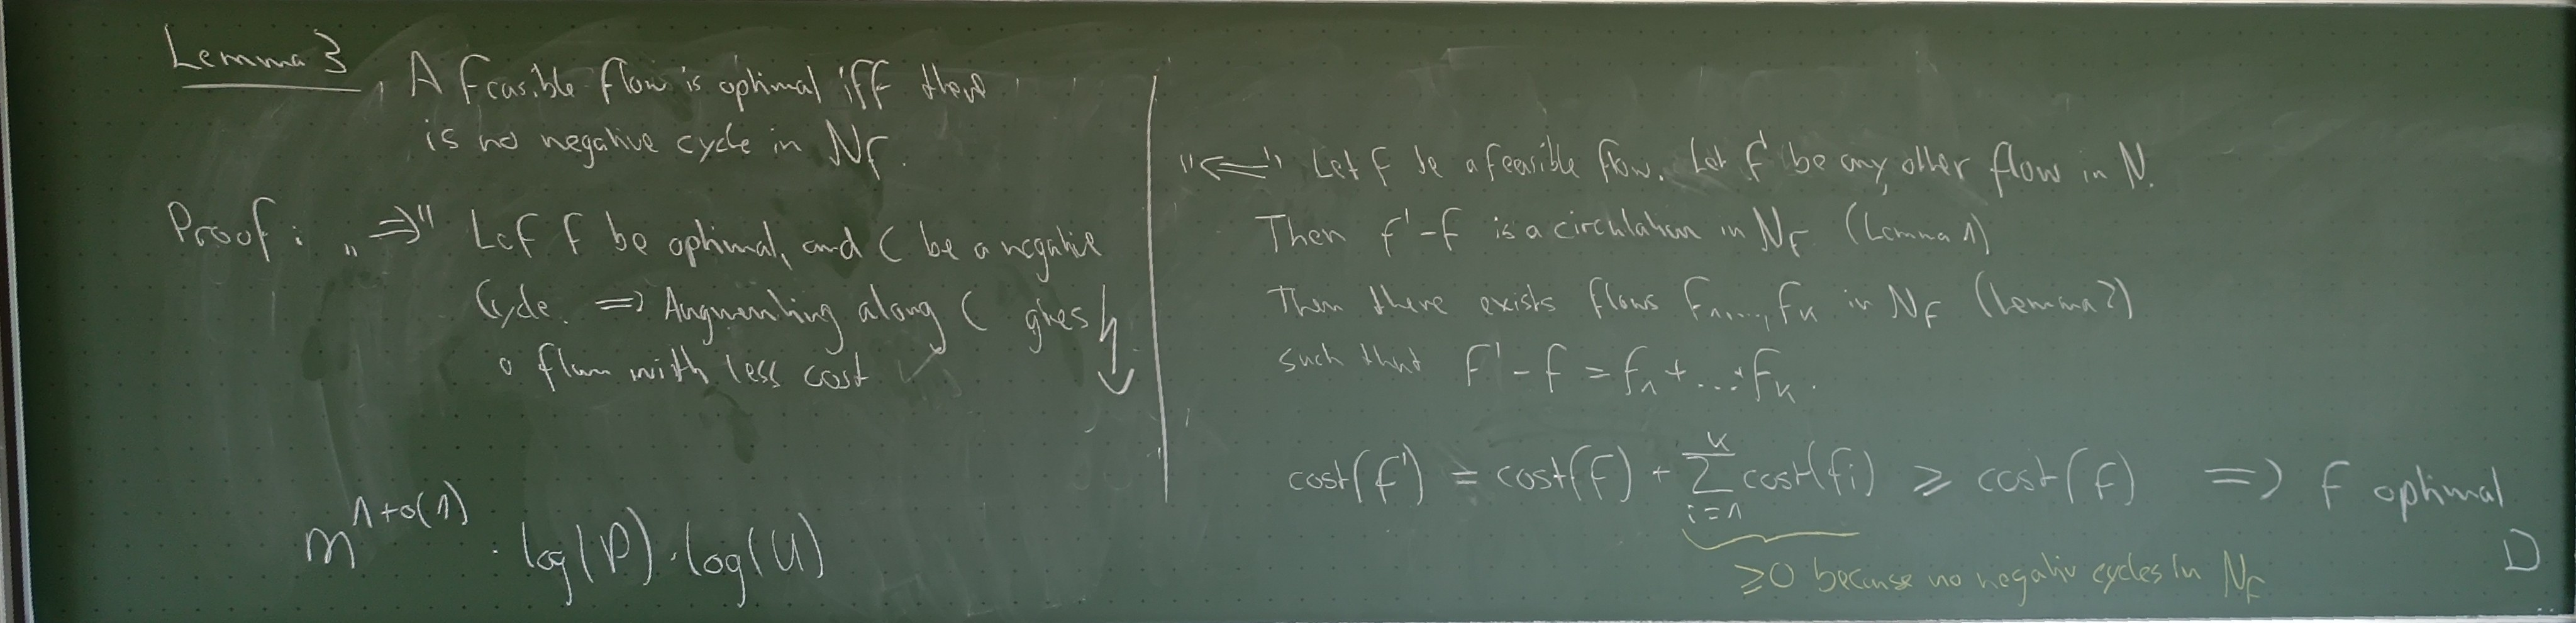 Lemma 3, A feasible flow is optimal iff there
is no negative cycle in N_f.
Proof: „⇒" Let f be optimal, and C be a negative
Cycle. ⇒ Augmenting along C gives ↯
a flow with less cost
m^{1+o(1)} · log(P) · log(U)
"⇐" Let f be a feasible flow. Let f' be any other flow in N.
Then f'-f is a circulation in N_f (Lemma 1)
Then there exists flows f_1,...,f_k in N_f (Lemma 2)
such that f'-f = f_1+...+f_k.
cost(f') = cost(f) + ∑_{i=1}^{k} cost(f_i) ≥ cost(f) ⇒ f optimal
≥0 because no negativ cycles in N_f
□